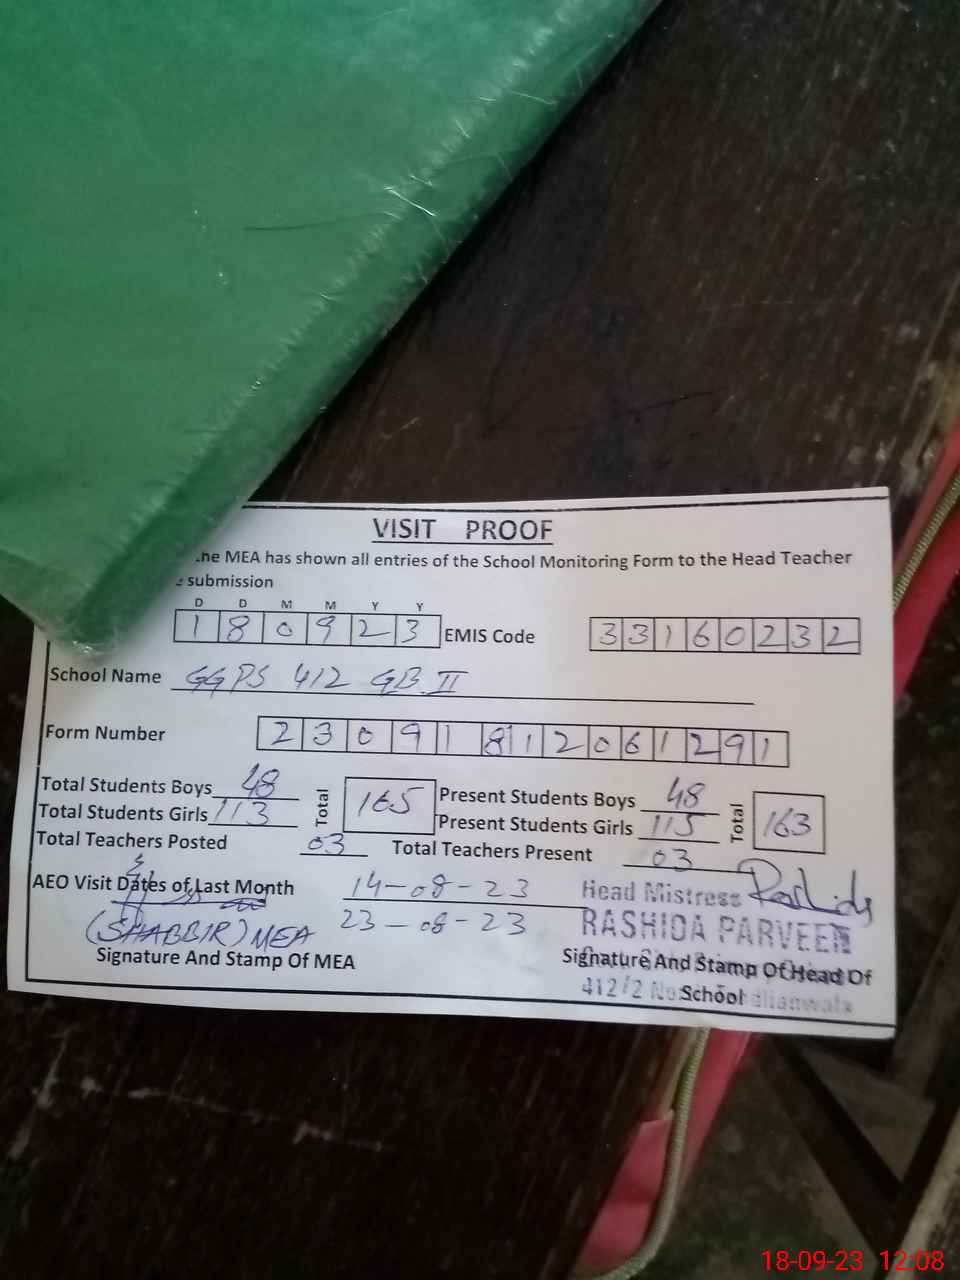 VISIT PROOF
the MEA has shown all entries of the School Monitoring Form to the Head Teacher
submission
D D M M Y Y
180923 EMIS Code 33160232
School Name GGPS 412 GB II
Form Number 23091812061291
Total Students Boys 48 Total 165 Present Students Boys 48 Total 163
Total Students Girls 113 Present Students Girls 115
Total Teachers Posted 03 Total Teachers Present 03
AEO Visit Dates of Last Month 14-08-23 Head Mistress
23-08-23 RASHIDA PARVEEN
(SHABBIR) MEA
Signature And Stamp Of MEA Signature And Stamp Of Head Of
School
412/2
18-09-23 12:08